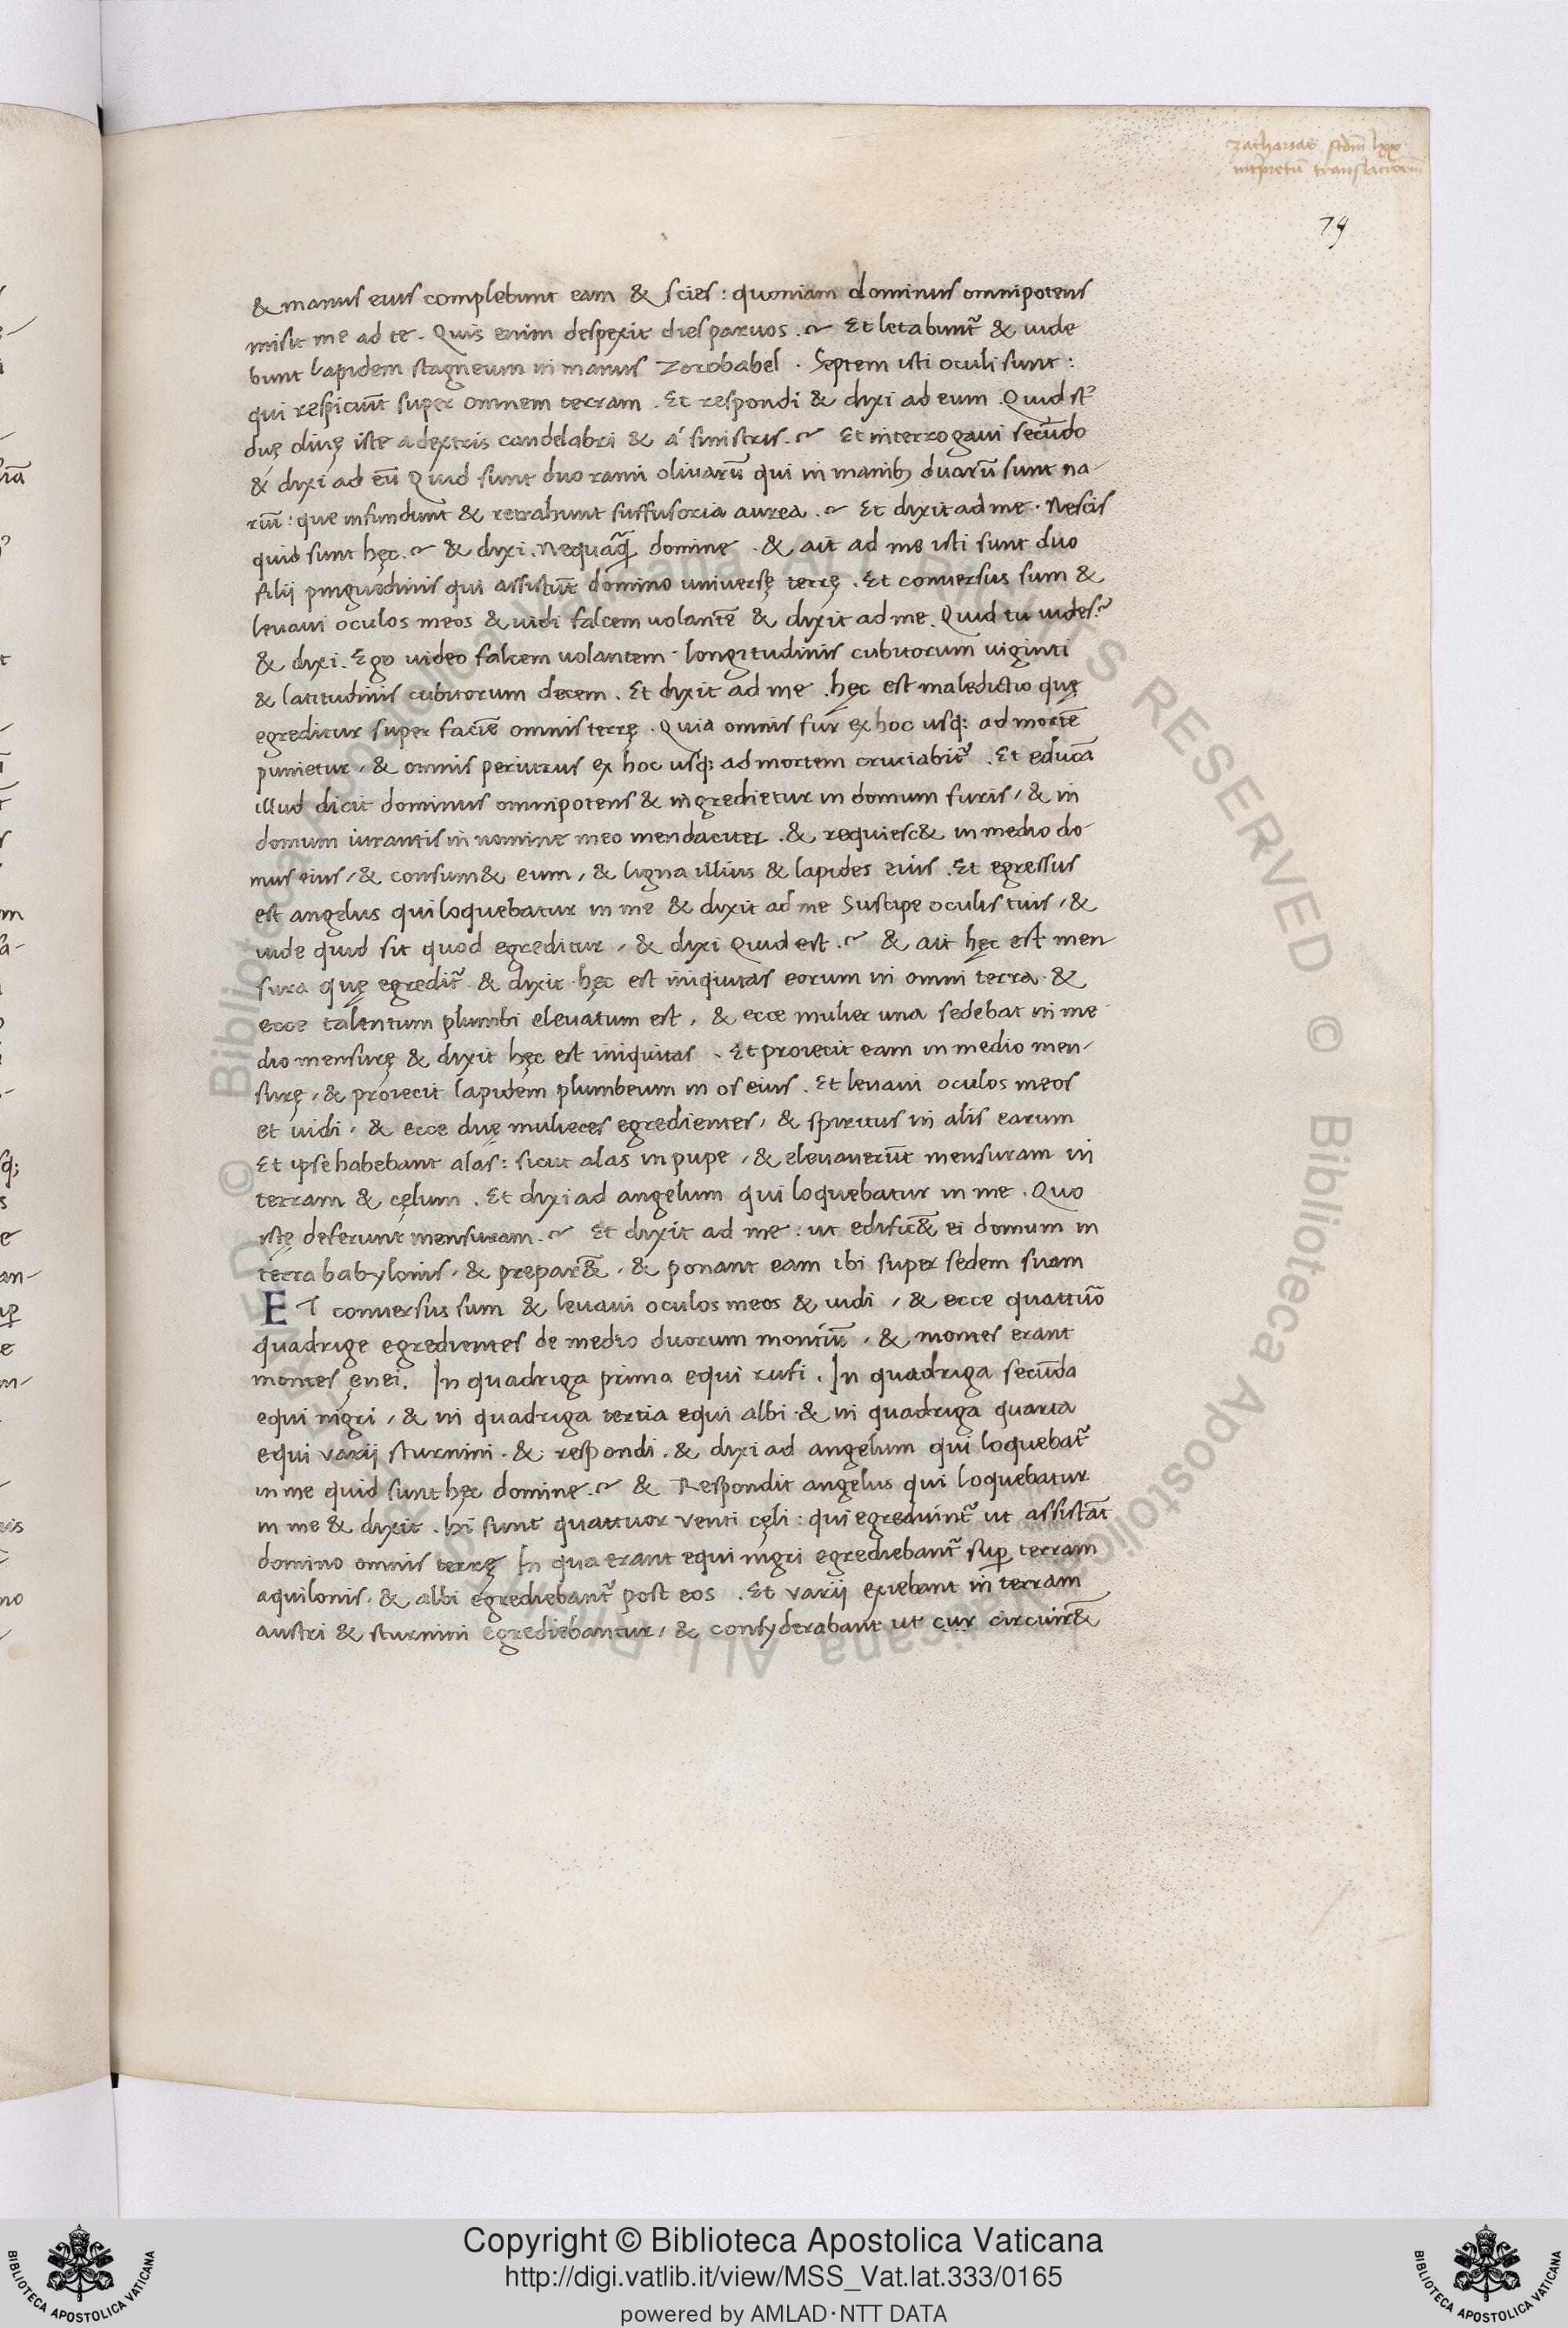 zacharias scdm̄ lxx
intꝑretū translationem̄
79
& manus eius complebunt eam & scies : quoniam dominus omnipotens
misit me ad te . Quis enim despexit dies paruos .~ Et letabunt᷑ & uide
bunt lapidem stagneum in manus zorobabel . Septem isti oculi sunt :
qui respiciūt super omnem terram . Et respondi & dixi ad eum . Quid st̄
duę oliuę iste a dextris candelabri & á sinistris .~ Et interrogaui secūdo
& dixi ad eū Quid sunt duo rami oliuarū qui in manibꝫ duarū sunt na-
riū : que infundunt & retrahunt suffusoria aurea .~ Et dixit ad me . Nescis
quid sunt hęc .~ & dixi . Nequaꝗ̃ domine . & ait ad me isti sunt duo
filij pinguedinis qui assistūt domino universę terrę . Et conuersus sum &
leuaui oculos meos & uidi falcem uolantē & dixit ad me . Quid tu uides .~
& dixi . Ego uideo falcem uolantem longitudinis cubitorum uiginti
& latitudinis cubitorum decem . Et dixit ad me . hęc est maledictio quę
egreditur super faciē omnis terrę . Quia omnis fur ex hoc usq; ad mortē
punietur , & omnis periurus ex hoc usq; ad mortem cruciabit᷑ . Et educā
illud dicit dominus omnipotens & ingredietur in domum furis , & in
domum iurantis in nomine meo mendaciter . & requiesc& in medio do-
mus eius , & consum& eum , & ligna illius & lapides eius . Et egressus
est angelus qui loquebatur in me & dixit ad me Suscipe oculis tuis , &
uide quid sit quod egreditur , & dixi Quid est .~ & ait hęc est men
sura quę egredit᷑ . & dixit hęc est iniquitas eorum in omni terra . &
ecce talentum plumbi eleuatum est , & ecce mulier una sedebat in me
dio mensurę & dixit hęc est iniquitas . Et proiecit eam in medio men-
surę , & proiecit lapidem plumbeum in os eius . Et leuaui oculos meos
et uidi , & ecce duę mulieres egredientes , & spiritus in alis earum
Et ipse habebant alas : sicut alas in pupe , & eleuauerūt mensuram in
terram & cęlum . Et dixi ad angelum qui loquebatur in me . Quo
istę deferunt mensuram .~ Et dixit ad me : ut edific& ei domum in
terra babylonis , & prepar& , & ponant eam ibi super sedem suam
ET conuersus sum & leuaui oculos meos & uidi , & ecce quattuō
quadrige egredientes de medio duorum montiū , & montes erant
montes ęnei . In quadriga prima equi rufi . In quadriga secūda
equi nigri , & in quadriga tertia equi albi & in quadriga quarta
equi varij sturnini . & respondi . & dixi ad angelum qui loquebat᷑
in me quid sunt hęc domine .~ & Respondit angelus qui loquebatur
in me & dixit . hi sunt quattuor venti cęli : qui egrediunt᷑ ut assistāt
domino omnis terrę In qua erant equi nigri egrediebant᷑ suꝑ terram
aquilonis , & albi egrediebant᷑ post eos . Et varij exiebant in terram
austri & sturnini egrediebantur , & consyderabant ut cur circuir&
© Biblioteca Apostolica Vaticana ALL RIGHTS RESERVED
Copyright © Biblioteca Apostolica Vaticana
http://digi.vatlib.it/view/MSS_Vat.lat.333/0165
powered by AMLAD·NTT DATA
BIBLIOTECA APOSTOLICA VATICANA
BIBLIOTECA APOSTOLICA VATICANA